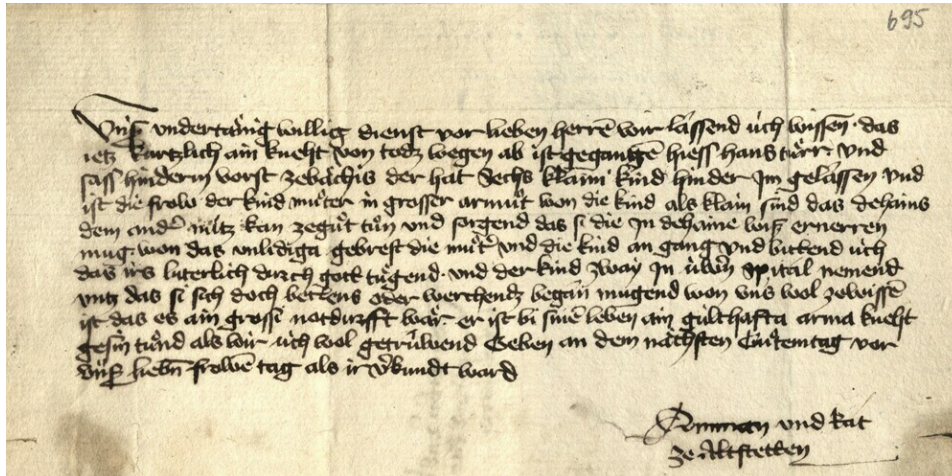 695
Unser undertänig willig dienst vor lieben herren wir lassend úch wissen · das
ietz kurtzlich ain kneht von todz wegen ab ist gegangen hiess hans túrr · und
sass hinderm vorst ze bächis der hat sechs klaini kind hinder im gelassen und
ist die frow der kind mùter in grosser armùt won die kind als klain sind das dehains
dem andern nútz kan ze gùt tùn und sorgend das si die in dehaine wiss ernerren
mug · won das unlidiga gebrest die mùter und die kind an gang und bittend úch
das irs luterlich durch gott tùgend · und der kind zway in úwern spital nemend
untz das si sich doch bettlens oder werchendz began mugend won uns wol ze wissen
ist das es ain grossi notdurfft wär · er ist bi sinem leben ain gúlthafta arma kneht
gesin tùnd als wir úch wol getrúwend Geben an dem nächsten Gùtemtag vor
únser lieben frowen tag als ir verkundt ward
Amman und Rat
ze Altstetten